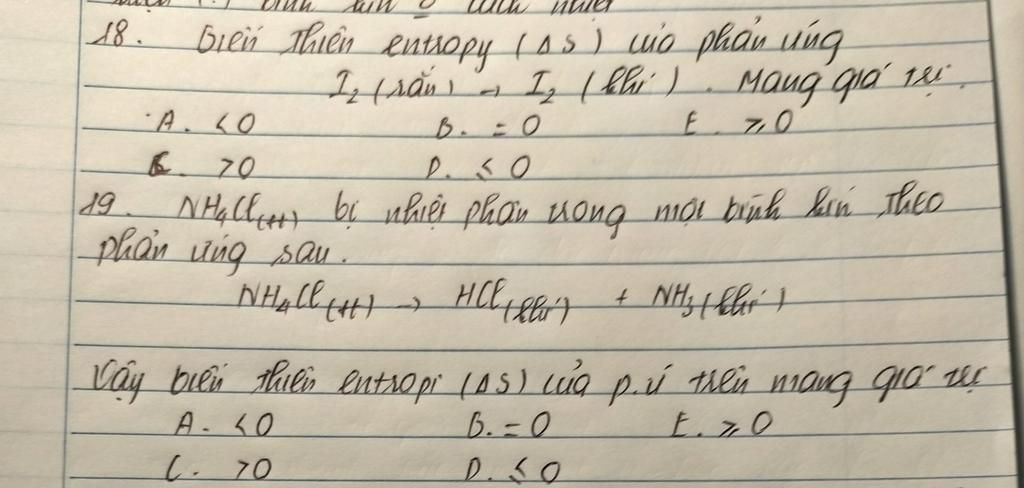 18. Biến thiên entropy (ΔS) của phản ứng
I₂ (rắn) → I₂ (khí). Mang giá trị.
A. <0 B. =0 E. ⩾0
C. >0 D. ⩽0
19. NH₄Cl(tt) bị nhiệt phân trong một bình kín theo
phản ứng sau.
NH₄Cl(tt) → HCl(khí) + NH₃(khí)
Vậy biến thiên entropi (ΔS) của p.ứ trên mang giá trị
A. <0 B. =0 E. ⩾0
C. >0 D. ⩽0